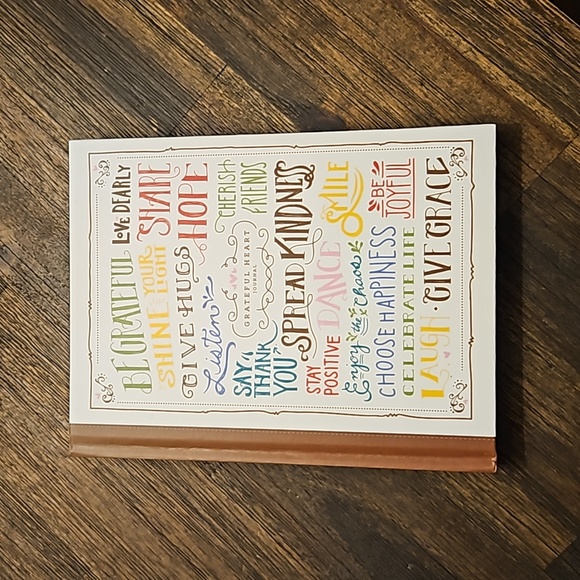 BE GRATEFUL LOVE DEARLY
SHINE YOUR LIGHT SHARE
GIVE HUGS HOPE
Listen CHERISH FRIENDS
GRATEFUL HEART
JOURNAL
SAY "THANK YOU"
SPREAD KINDNESS
STAY POSITIVE DANCE SMILE
Enjoy the Chaos
CHOOSE HAPPINESS BE JOYFUL
CELEBRATE LIFE
LAUGH · GIVE GRACE